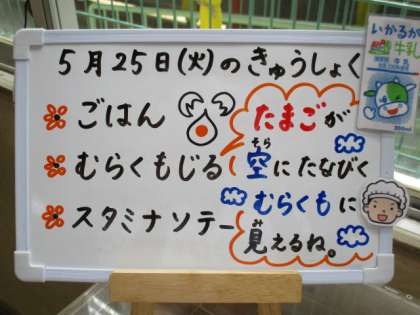 5月25日(火)のきゅうしょく
ごはん
むらくもじる
スタミナソテー
たまごが
空にたなびく
むらくもに
見えるね。
いかるが
牛乳